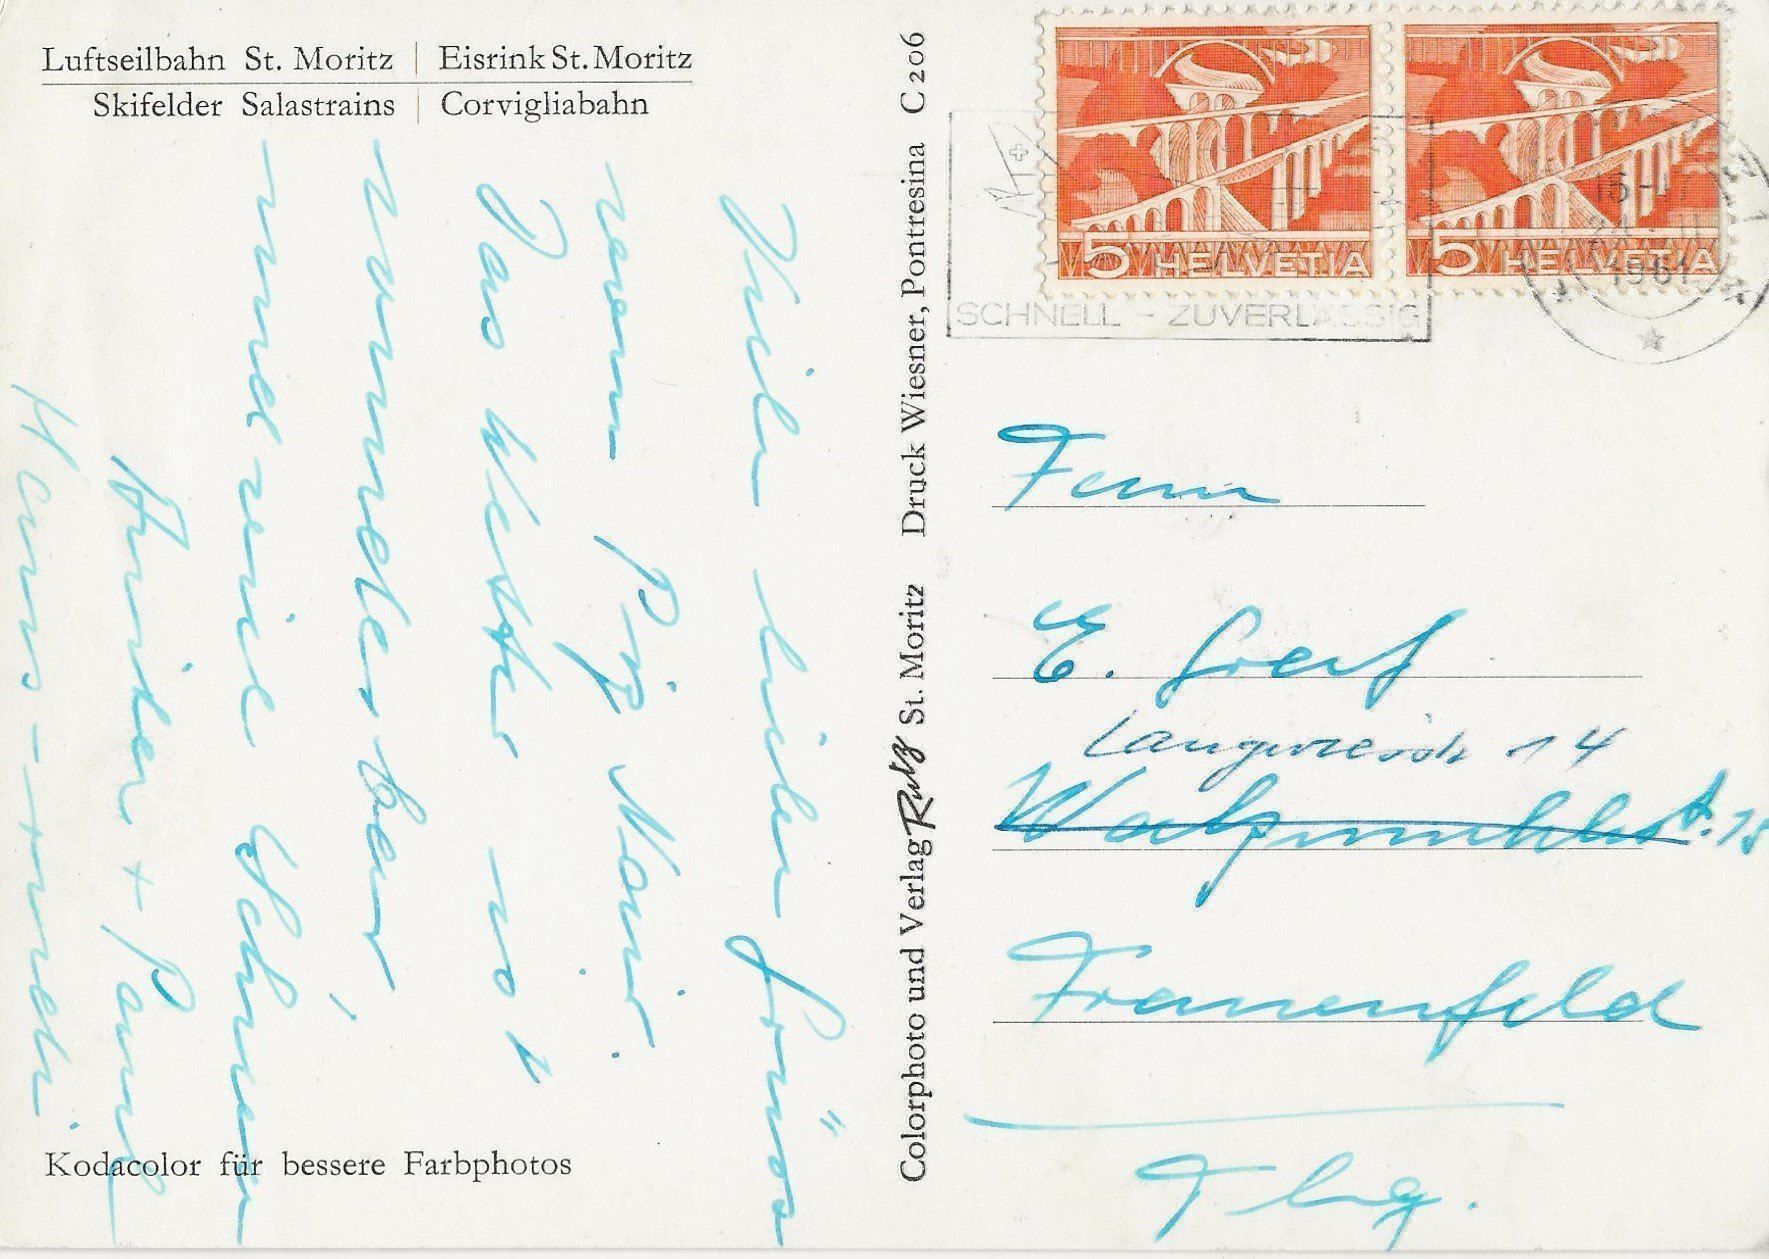 Luftseilbahn St. Moritz | Eisrink St. Moritz
Skifelder Salastrains | Corvigliabahn
Viele liebe Grüsse
vom Piz Nair.
Das Wetter ist
wunderbar,
und viel Schnee
+
Hans-
Kodacolor für bessere Farbphotos
Colorphoto und Verlag Rutz St. Moritz Druck Wiesner, Pontresina C 206
5 HELVETIA
5 HELVETIA
SCHNELL - ZUVERLÄSSIG
1961
E. Graf
14
Frauenfeld
Thg.